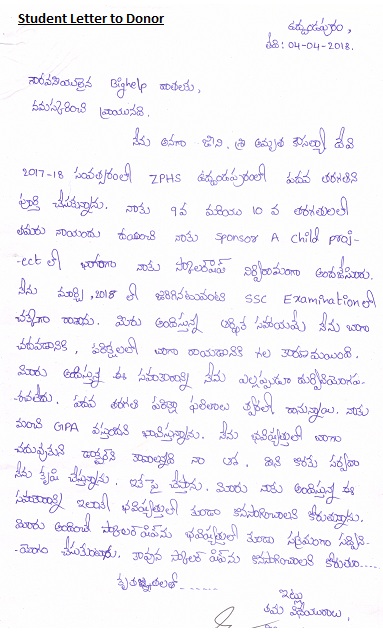 Student Letter to Donor
ఉద్దండపురం,
తేది: 04-04-2018.
గౌరవనీయులైన Bighelp దాతలకు,
నమస్కరించి వ్రాయునది.
నేను అనగా జి.వి. శ్రీ అమృత కౌసల్యా దేవి
2017-18 సంవత్సరంలో ZPHS ఉద్దండపురంలో పదవ తరగతిని
పూర్తి చేసుకున్నాను. నాకు 9వ మరియు 10 వ తరగతులలో
తమరు నాయందు ఉంచి నాకు Sponsor A Child proj-
-ect లో భాగంగా నాకు స్కాలర్‌షిప్ నిర్విరామంగా అందజేసారు.
నేను మార్చి, 2018 లో జరిగినటువంటి SSC Examination లో
చక్కగా రాశాను. మీరు అందిస్తున్న ఆర్థిక సహాయమే నేను బాగా
చదవడానికి, పరీక్షలలో బాగా రాయడానికి గల కారణమయింది.
మీరు అందిస్తున్న ఈ సహకారాన్ని నేను ఎల్లప్పుడూ దుర్వినియోగప-
-రచలేదు. పదవ తరగతి పరీక్షా ఫలితాలు త్వరలో రానున్నాయి. నాకు
మంచి GPA వస్తుందని భావిస్తున్నాను. నేను భవిష్యత్తులో బాగా
చదువుకుని డాక్టర్‌ని కావాలన్నదే నా ఆశ. దీని కొరకు సర్వదా
నేను కృషి చేస్తున్నాను. ఇకపై చేస్తాను. మీరు నాకు అందిస్తున్న ఈ
సహకారాన్ని ఇలాగే భవిష్యత్తులో కూడా కొనసాగించాలని కోరుతున్నాను.
మీరు అందించే స్కాలర్‌షిప్‌ను భవిష్యత్తులో కూడా సక్రమంగా సద్విని-
-యోగం చేసుకుంటాను. కావున స్కాలర్ షిప్‌ను కొనసాగించాలని కోరుతూ.....
కృతజ్ఞతలతో .......
ఇట్లు
తమ విధేయురాలు,